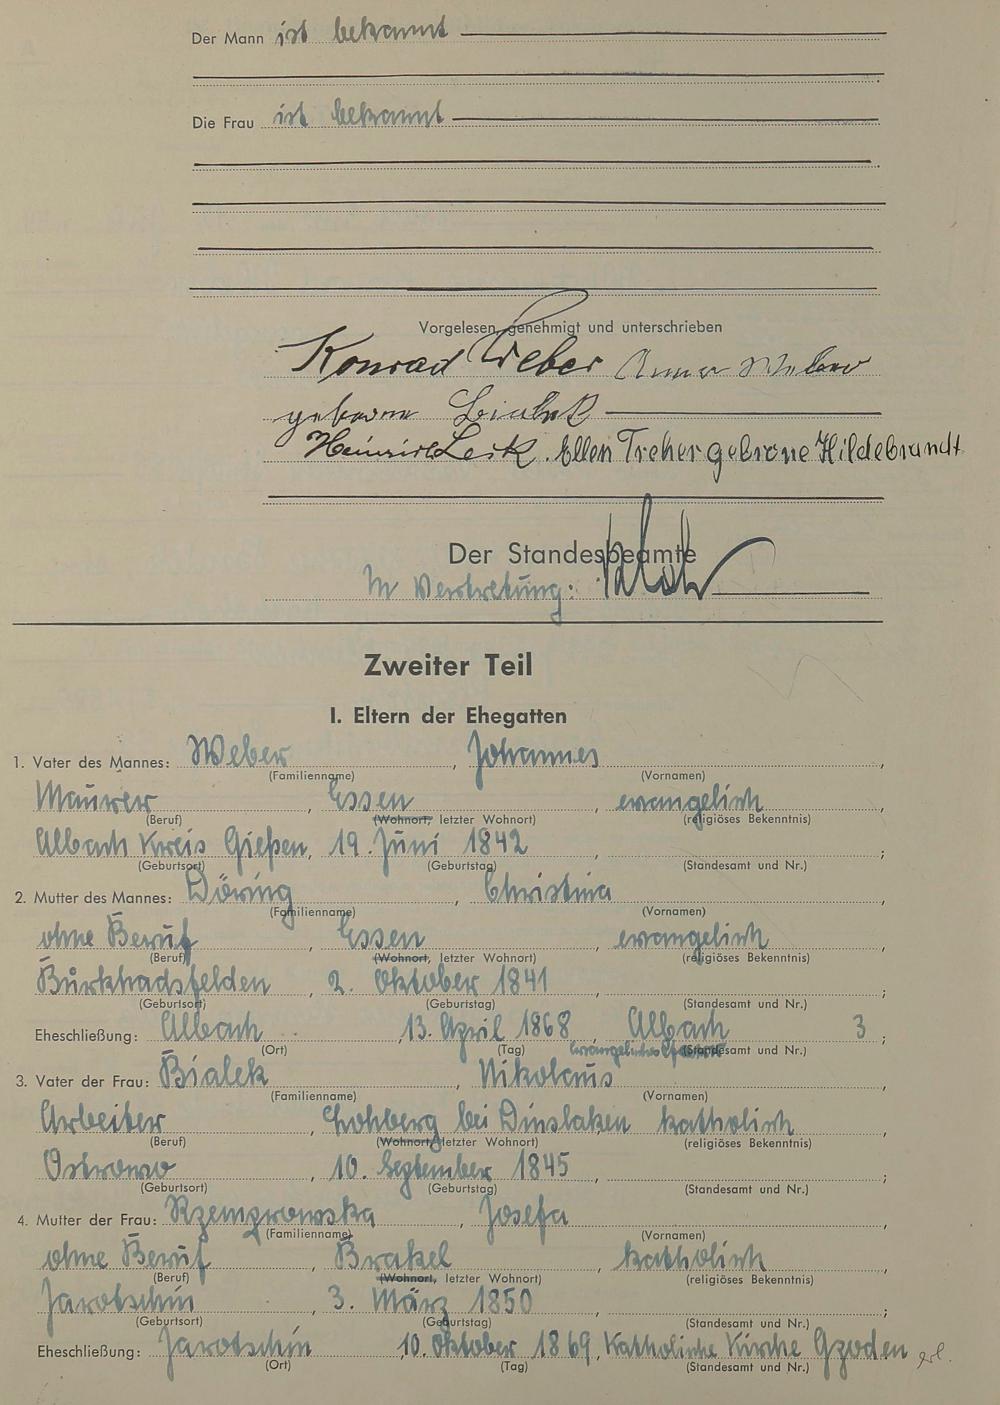 Der Mann ist bekannt
Die Frau ist bekannt
Vorgelesen, genehmigt und unterschrieben
Konrad Weber Anna Weber
geborene Bialek
Heinrich Leik. Ellen Treher geborone Hildebrandt
Der Standesbeamte
In Vertretung:
Zweiter Teil
I. Eltern der Ehegatten
1. Vater des Mannes: Weber, Johannes,
(Familienname) (Vornamen)
Maurer, Essen, evangelisch
(Beruf) (Wohnort, letzter Wohnort) (religiöses Bekenntnis)
Albach Kreis Gießen, 19. Juni 1842, ;
(Geburtsort) (Geburtstag) (Standesamt und Nr.)
2. Mutter des Mannes: Döring, Christina,
(Familienname) (Vornamen)
ohne Beruf, Essen, evangelisch,
(Beruf) (Wohnort, letzter Wohnort) (religiöses Bekenntnis)
Burkhadsfelden, 2. Oktober 1841, ;
(Geburtsort) (Geburtstag) (Standesamt und Nr.)
Eheschließung: Albach, 13. April 1868, Albach 3;
(Ort) (Tag) evangelisches (Standesamt und Nr.)
3. Vater der Frau: Bialek, Nikolaus,
(Familienname) (Vornamen)
Arbeiter, Lohberg bei Dinslaken katholisch,
(Beruf) (Wohnort, letzter Wohnort) (religiöses Bekenntnis)
Ostrowo, 10. September 1845, ;
(Geburtsort) (Geburtstag) (Standesamt und Nr.)
4. Mutter der Frau: Rzemzrowska, Josefa,
(Familienname) (Vornamen)
ohne Beruf, Brakel, katholisch,
(Beruf) (Wohnort, letzter Wohnort) (religiöses Bekenntnis)
Jarotschin, 3. März 1850, ;
(Geburtsort) (Geburtstag) (Standesamt und Nr.)
Eheschließung: Jarotschin, 10. Oktober 1869, Katholische Kirche Gzoden erl.
(Ort) (Tag) (Standesamt und Nr.)